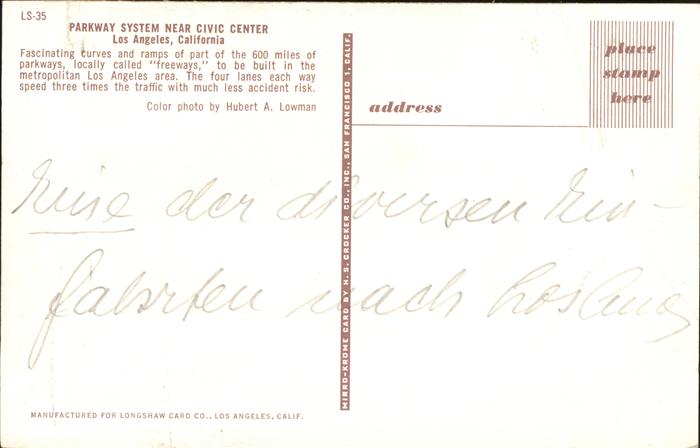 LS-35
PARKWAY SYSTEM NEAR CIVIC CENTER
Los Angeles, California
Fascinating curves and ramps of part of the 600 miles of
parkways, locally called "freeways," to be built in the
metropolitan Los Angeles area. The four lanes each way
speed three times the traffic with much less accident risk.
Color photo by Hubert A. Lowman
MIRRO-KROME CARD BY H. S. CROCKER CO., INC., SAN FRANCISCO 1, CALIF.
place
stamp
here
address
Eine der diversen Ein-
fahrten nach Los Ang
MANUFACTURED FOR LONGSHAW CARD CO., LOS ANGELES, CALIF.